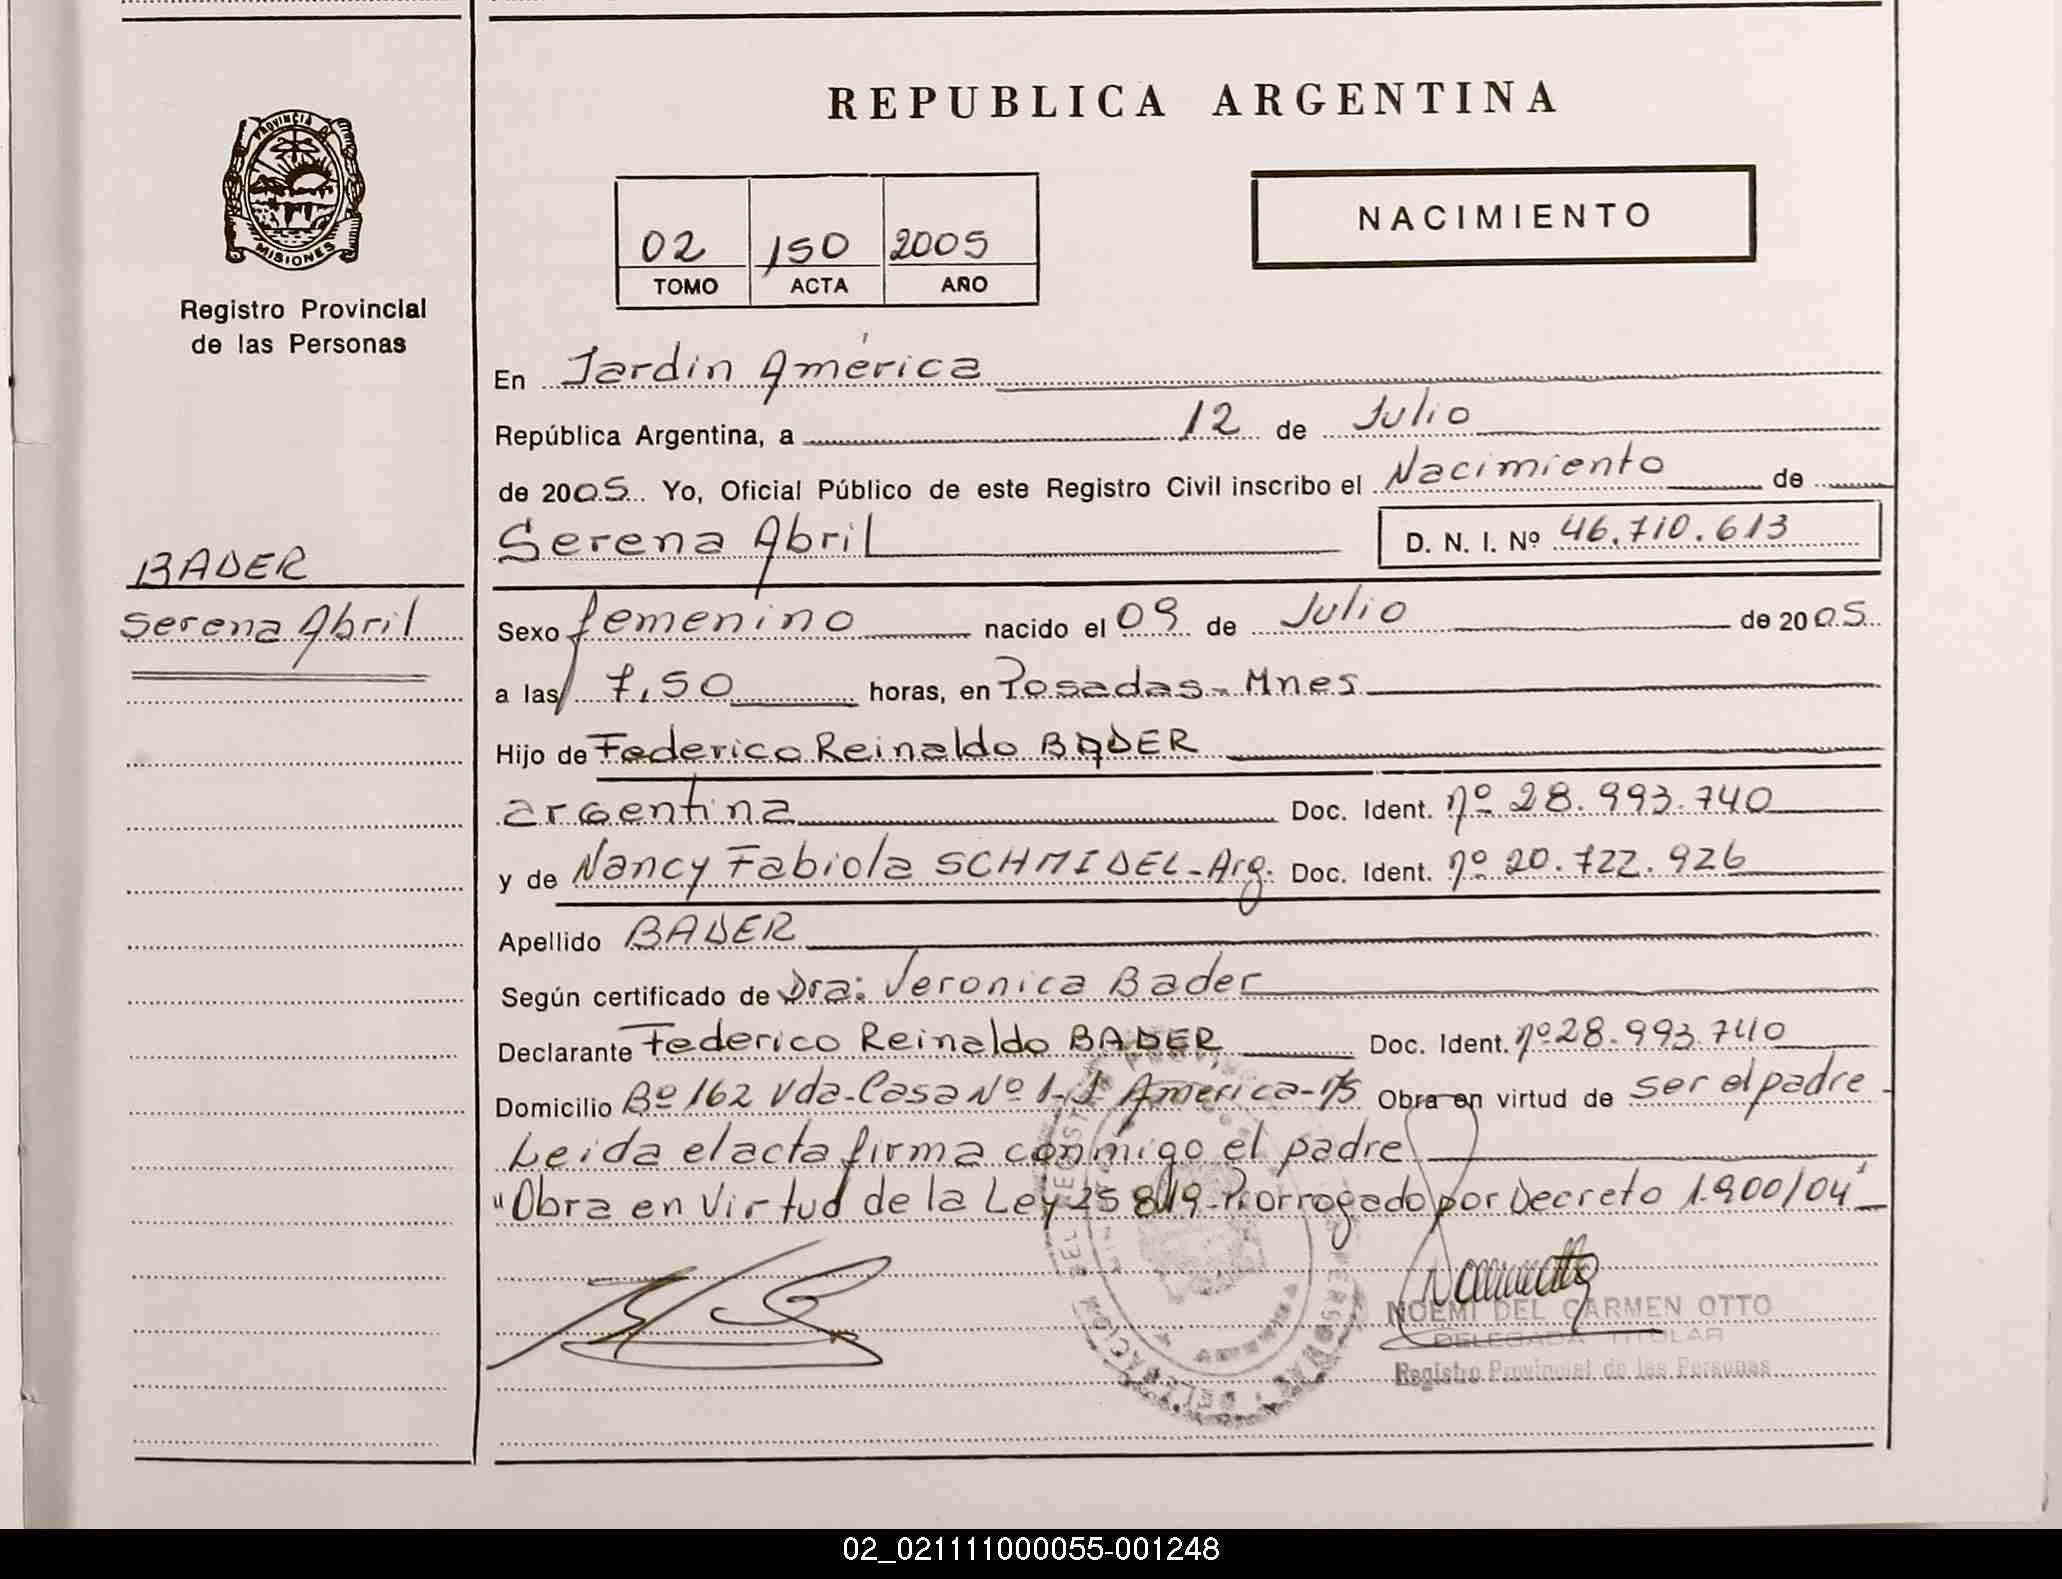 PROVINCIA DE
MISIONES
Registro Provincial
de las Personas
BADER
Serena Abril
REPUBLICA ARGENTINA
02 150 2005
TOMO ACTA AÑO
NACIMIENTO
En Jardin América
República Argentina, a 12 de Julio
de 2005 Yo, Oficial Público de este Registro Civil inscribo el Nacimiento de
Serena Abril D. N. I. Nº 46.710.613
Sexo femenino nacido el 09 de Julio de 2005
a las 7,50 horas, en Posadas - Mnes
Hijo de Federico Reinaldo BADER
argentina Doc. Ident. nº 28.993.740
y de Nancy Fabiola SCHMIDEL - Arg. Doc. Ident. nº 20.722.926
Apellido BADER
Según certificado de Dra: Veronica Bader
Declarante Federico Reinaldo BADER Doc. Ident. nº 28.993.740
Domicilio Bº 162 Vda - Casa Nº 1 - J América - Obra en virtud de ser el padre -
Leida el acta firma conmigo el padre
"Obra en Virtud de la Ley 25819 - Prorrogado por Decreto 1.900/04"
NOEMI DEL CARMEN OTTO
DELEGADA TITULAR
Registro Provincial de las Personas
02_021111000055-001248